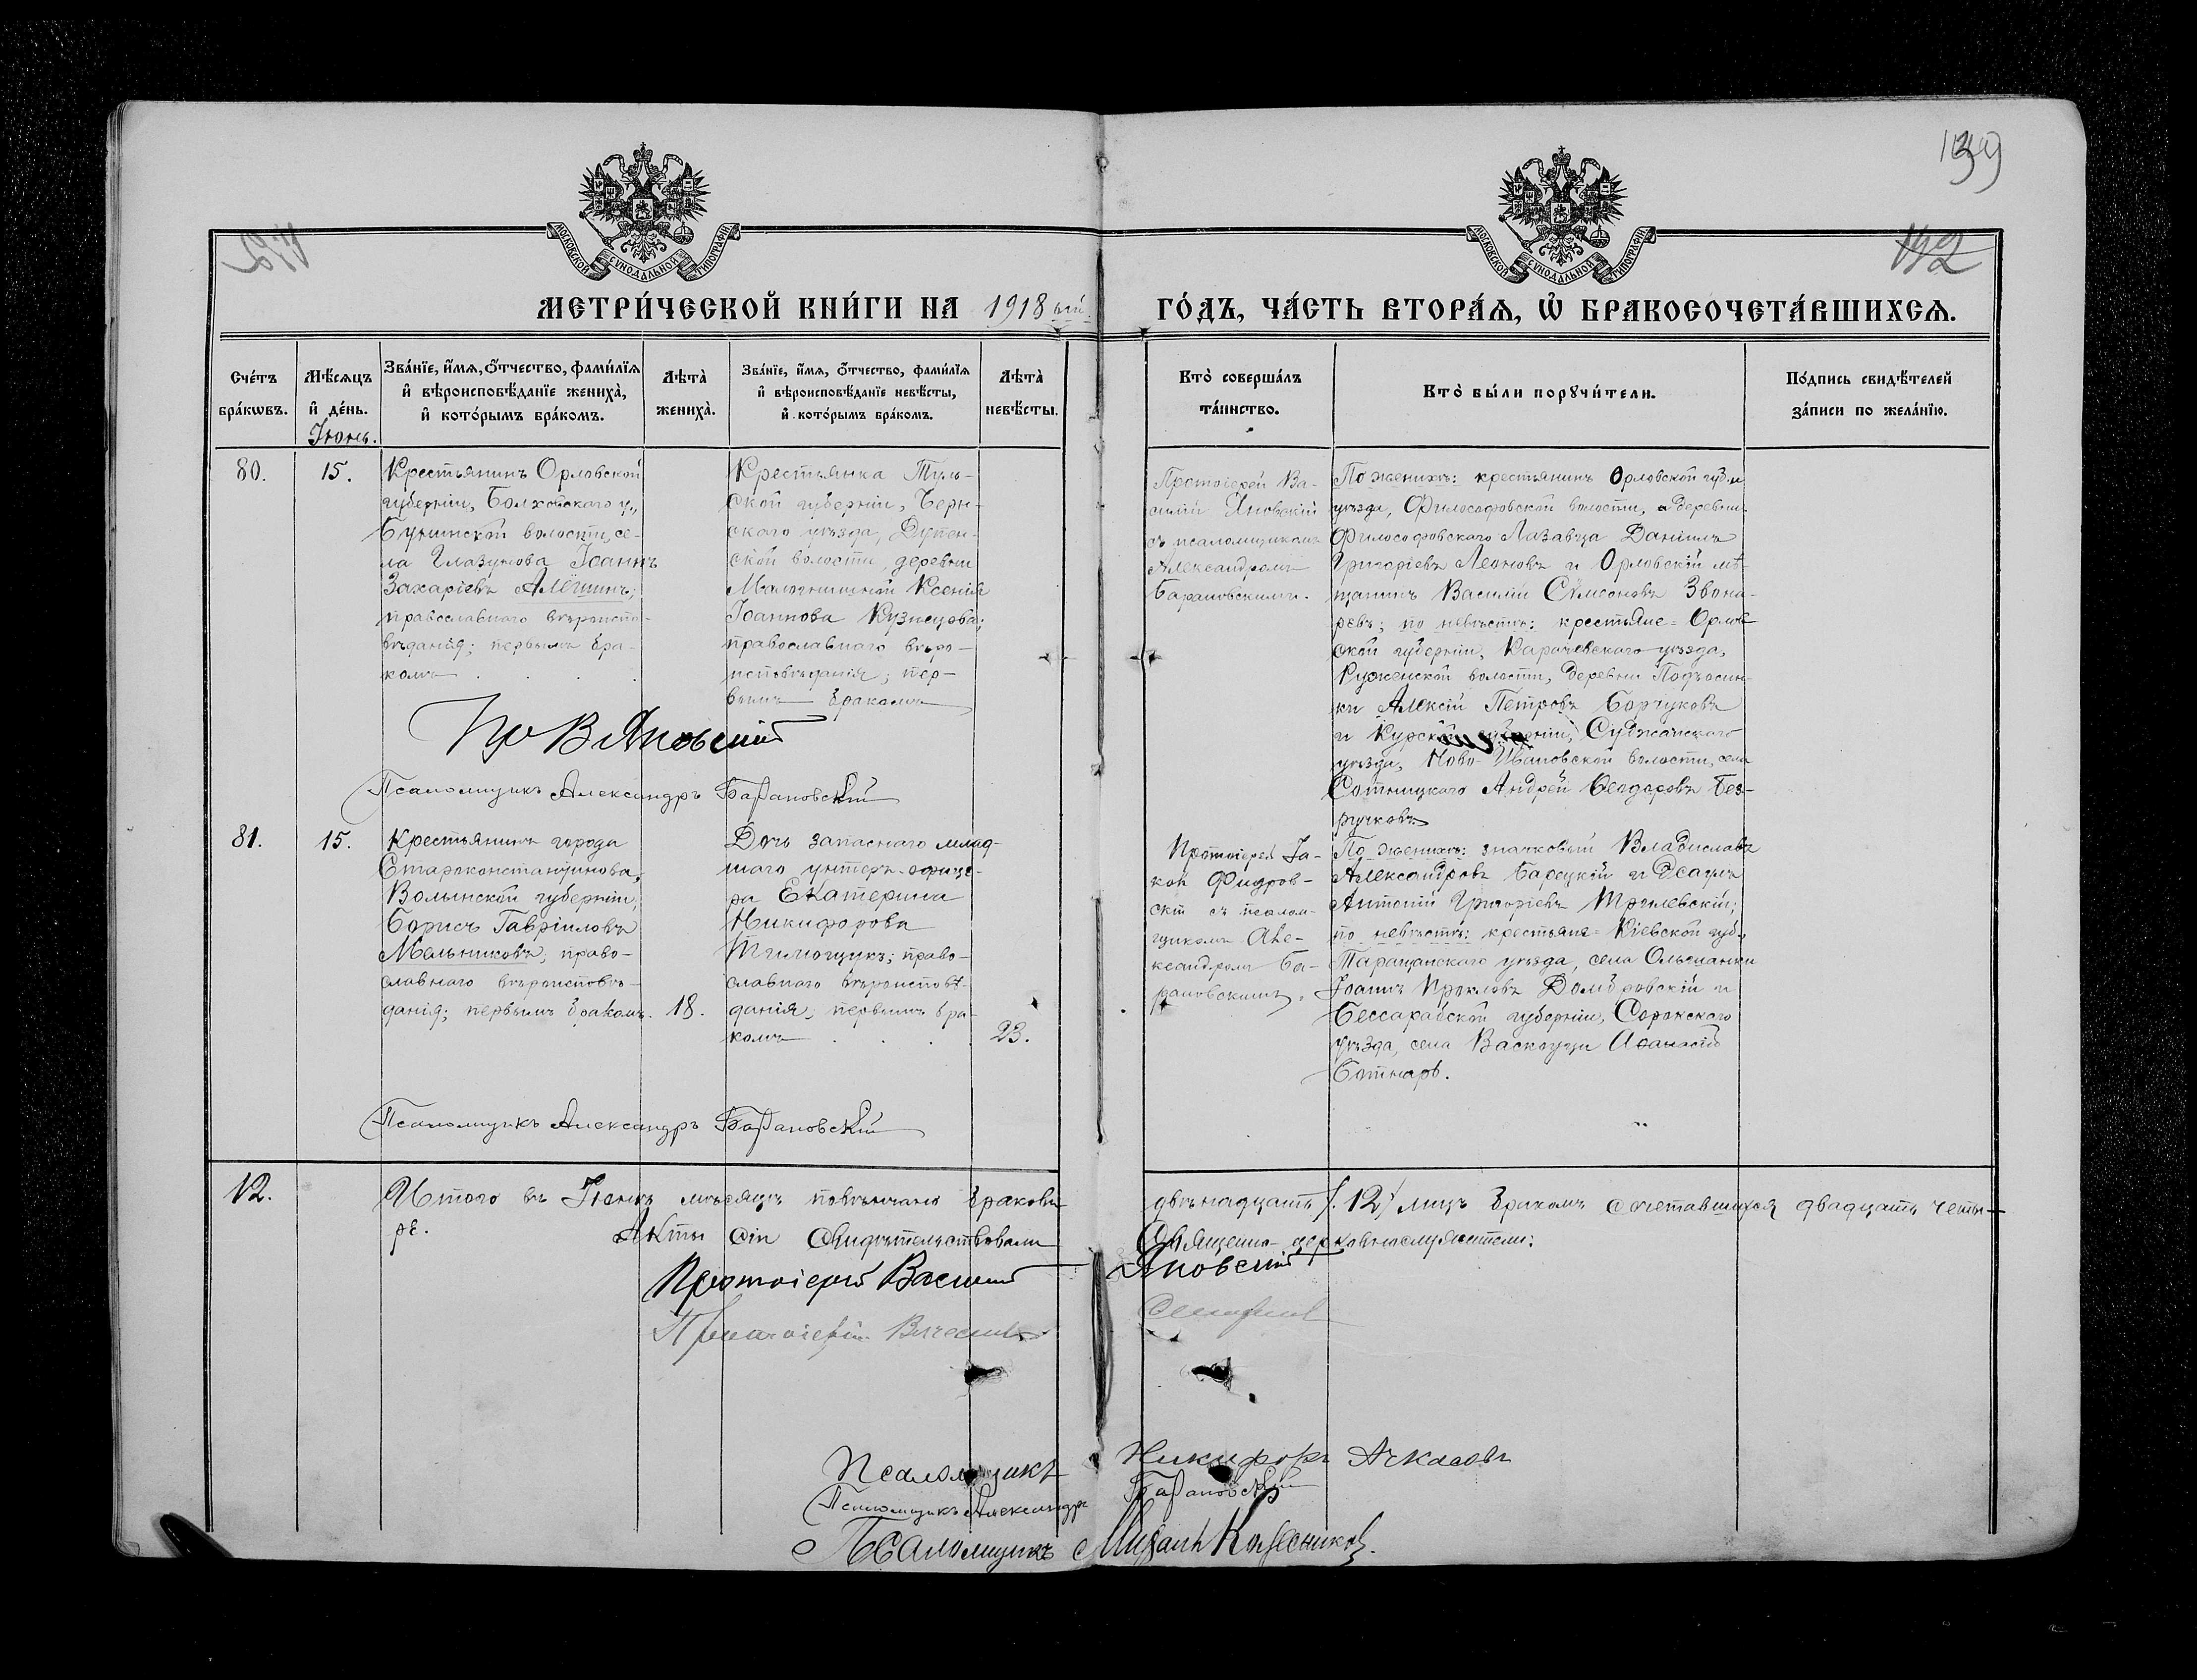 139
142
МОСКОВСКОЙ СУНОДАЛЬНОЙ ТИПОГРАФІИ
МОСКОВСКОЙ СУНОДАЛЬНОЙ ТИПОГРАФІИ
МЕТРИ́ЧЕСКОЙ КНИ́ГИ НА 1918 ый
ГО́ДЪ, ЧА́СТЬ ВТОРА́Ѧ, Ѡ҆ БРАКОСОЧЕТА́ВШИХСѦ.
Счетъ бра́кѡвъ.
Мѣ́сѧцъ и҆ де́нь.
Іюнь.
Зва́нїе, и҆́мѧ, ѻ҆́тчество, фами́лїѧ
и҆ вѣроисповѣ́данїе жениха̀,
и҆ кото́рымъ бра́комъ.
Лѣта̀ жениха̀.
Зва́нїе, и҆́мѧ, ѻ҆́тчество, фами́лїѧ
и҆ вѣроисповѣ́данїе невѣ́сты,
и҆ кото́рымъ бра́комъ.
Лѣта̀ невѣ́сты.
Кто̀ соверша́лъ та́инство.
Кто̀ бы́ли порꙋчи́тели.
По́дпись свидѣ́телей
за́писи по жела́нїю.
80.
15.
Крестьянинъ Орловской
губерніи, Болховскаго у.,
Бунинской волости, се-
ла Глазунова Іоаннъ
Захаріевъ Алёшинъ;
православнаго вѣроиспо-
вѣданія; первымъ бра-
комъ
Крестьянка Туль-
ской губерніи, Черн-
скаго уѣзда, Дупен-
ской волости, деревни
Ксенія
Іоаннова Кузнецова;
православнаго вѣро-
исповѣданія; пер-
вымъ бракомъ
Протоіерей Ва-
силій Яновскій
съ псаломщикомъ
Александромъ
Барановскимъ.
По женихѣ: крестьянинъ Орловской губ. и
уѣзда, Философовской волости, деревни
Философовскаго Лазавца Даніилъ
Григоріевъ Леоновъ и Орловскій мѣ-
щанинъ Василій Сѵмеоновъ Звона-
ревъ; по невѣстѣ: крестьяне = Орлов-
ской губерніи, Карачевскаго уѣзда,
Руженской волости, деревни Подъосин-
ки Алексій Петровъ Борчуковъ
и Курской губерніи, Суджанскаго
уѣзда, Ново-Ивановской волости, села
Сотницкаго Андрей Ѳеодоровъ Без-
ручковъ
Пр В Яновскій
Псаломщикъ Александръ Барановскій
81.
15.
Крестьянинъ города
Староконстантинова,
Волынской губерніи,
Борисъ Гавріиловъ
Мельниковъ; право-
славнаго вѣроисповѣ-
данія; первымъ бракомъ.
18.
Дочь запаснаго млад-
шаго унтеръ-офице-
ра Екатерина
Никифорова
Тимощукъ; право-
славнаго вѣроисповѣ-
данія; первымъ бра-
комъ
23.
Протоіерей Іа-
ковъ
скій съ псалом-
щикомъ Але-
ксандромъ Ба-
рановскимъ.
По женихѣ: значковый Владиславъ
Александровъ Барецкій и
Антоній Григоріевъ
по невѣстѣ: крестьяне = Кіевской губ.,
Таращанскаго уѣзда, села Ольшанки
Іоаннъ Прокловъ Домбровскій и
Бессарабской губерніи, Сорокскаго
уѣзда, села Васкоуци Аѳанасій
Ботнарь.
Псаломщикъ Александръ Барановскій
12.
Итого въ Іюнѣ мѣсяцѣ повѣнчано браковъ
двѣнадцать /12/ лицъ бракомъ сочетавшихся двадцать четы-
ре.
Акты сіи свидѣтельствовали
Священно-церковнослужители:
Протоіерей Василій Яновскій
Протоіерей Вячеславъ
Псаломщикъ Никифоръ Аскасовъ
Псаломщикъ Александръ Барановскій
Псаломщикъ Михаилъ Колесниковъ.